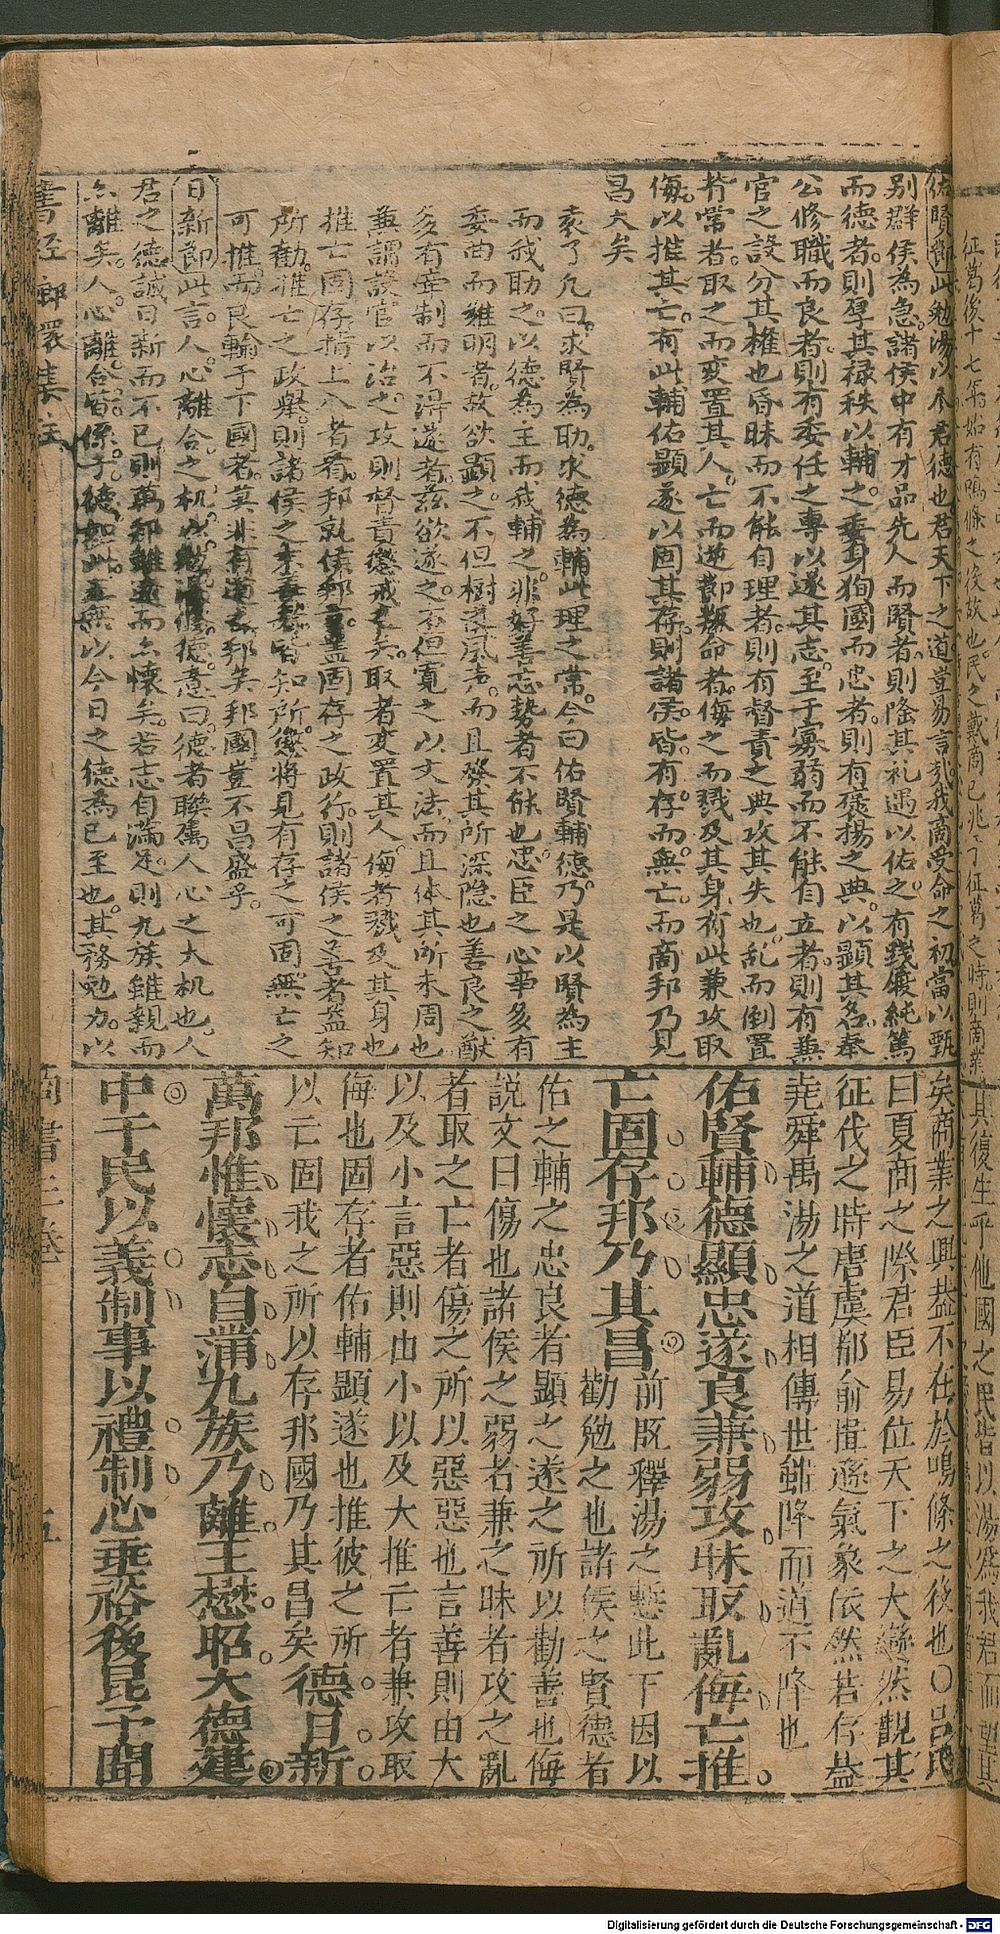 佑賢節此勉湯以尽君德也君天下之道豈易言哉我商受命之初當以甄
別群侯為急諸侯中有才品先人而賢者則隆其礼遇以佑之有踐履純篤
而德者則孚其禄秩以輔之委身狥國而忠者則有褒揚之典以顯其名奉
公修職而良者則有委任之專以遂其志至于寡弱而不能自立者則有兼
官之設分其權也昏昧而不能自理者則有督責之典攻其失也乱而倒置
常者取之而変置其人亡而逆節叛命者侮之而戮及其身有此兼攻取
侮以推其亡有此輔佑顯遂以固其存則諸侯皆有存而無亡而商邦乃見
昌大矣
袁了凡曰求賢為助求德為輔此理之常今曰佑賢輔德乃是以賢為主
而我助之以德為主而我輔之非好善忘勢者不能也忠臣之心事多有
委曲而難明者故欲顯之不但樹之風声而且發其所深隐也善良之猷
多有牽制而不得遂者兹欲遂之不但寬之以文法而且体其所未周也
兼謂設官以治之攻則督責懲戒之矣取者変置其人侮者戮及其身也
推亡固存指上八者看邦就侯邦言盖固存之政行則諸侯之善者益知
所勸推亡之政舉則諸侯之未善者皆知所懲將見有存之可固無亡之
可推而良輸于下國者莫非有道之邦矣邦國豈不昌盛乎
日新節此言人心離合之机以勉湯修德意曰德者聯属人心之大机也人
君之德誠日新而不已則萬邦雖遠而亦懷矣若志自滿足則九族雖親而
亦離矣人心離合皆係于德如此王無以今日之德為已至也其務勉力以
矣商業之興盖不在於鳴條之後也○吕氏
曰夏商之際君臣易位天下之大變然觀其
征伐之時唐虞都俞揖遜氣象依然若存盖
堯舜禹湯之道相傳世雖降而道不降也
佑賢輔德顯忠遂良兼弱攻昧取亂侮亡推
亡固存邦乃其昌 前既釋湯之慙此下因以
勸勉之也諸侯之賢德者
佑之輔之忠良者顯之遂之所以勸善也侮
説文曰傷也諸侯之弱者兼之昧者攻之亂
者取之亡者傷之所以惡惡也言善則由大
以及小言惡則由小以及大推亡者兼攻取
侮也固存者佑輔顯遂也推彼之所
以亡固我之所以存邦國乃其昌矣 德日新
萬邦惟懷志自滿九族乃離王懋昭大德建
中于民以義制事以禮制心垂裕後昆予聞
書經
商書三卷
五
Digitalisierung gefördert durch die Deutsche Forschungsgemeinschaft - DFG